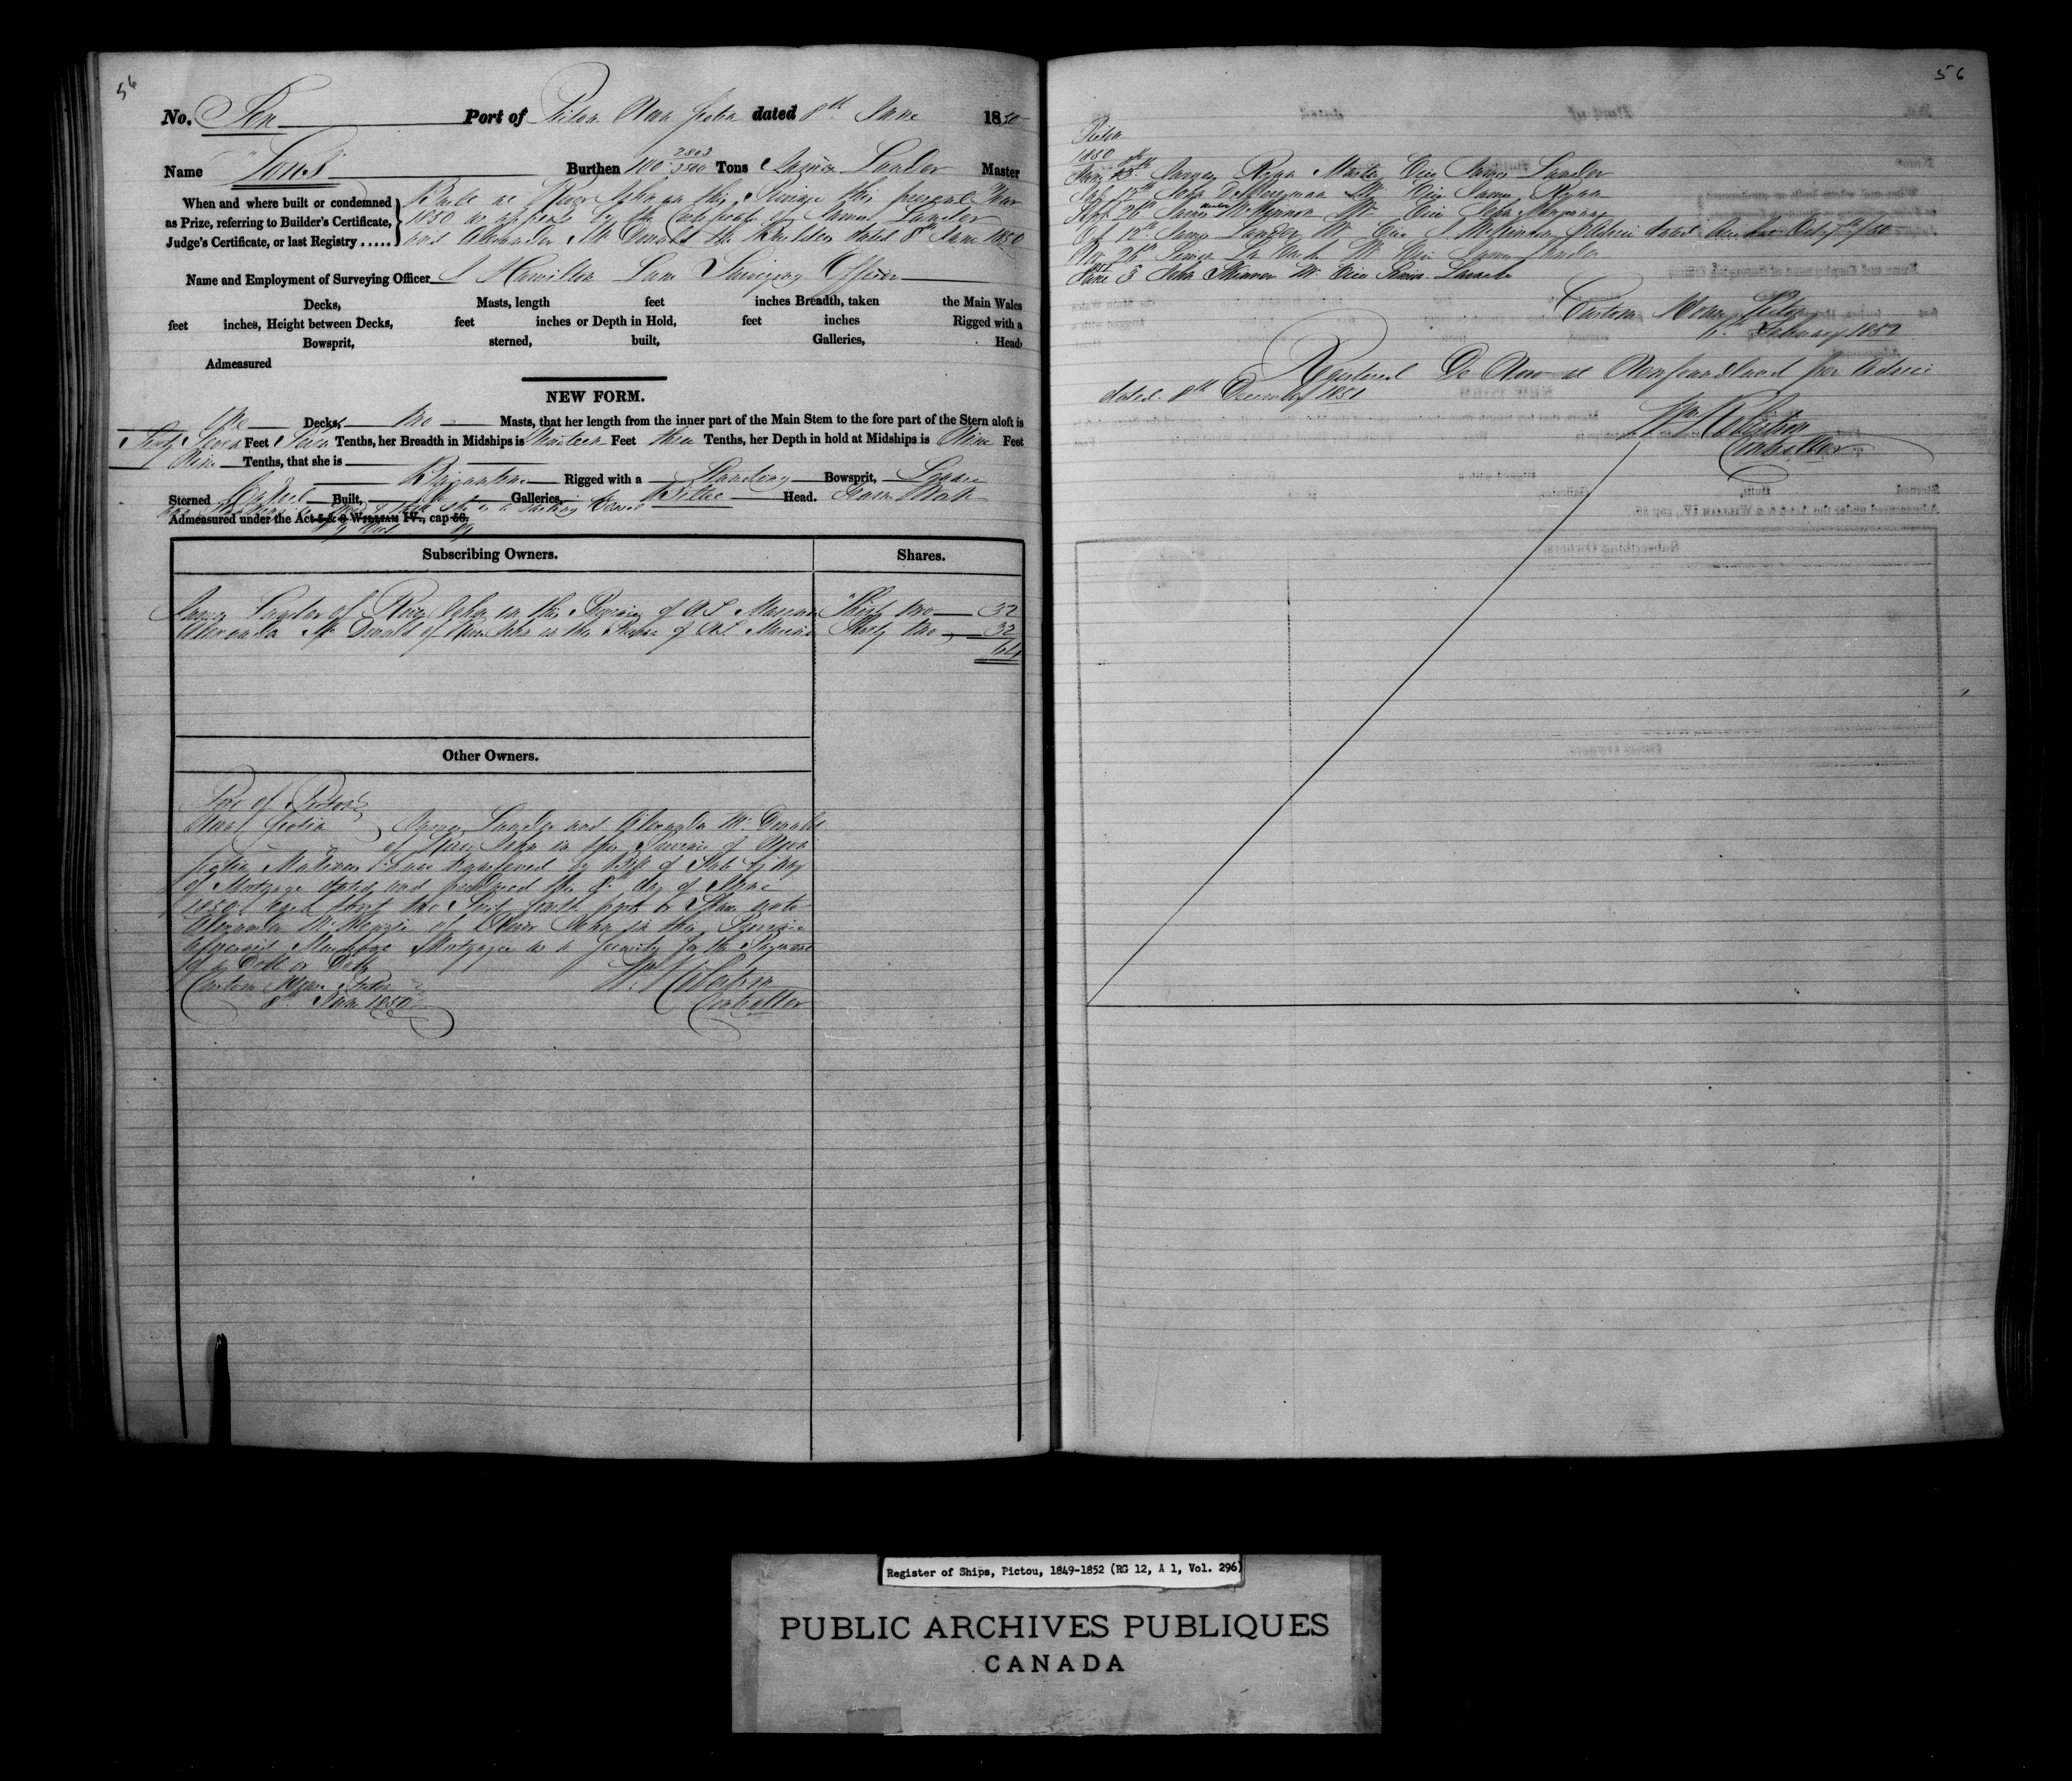 56
No. Ten Port of Pictou Nova Scotia dated 8th June 1850
Name "Ions" Burthen 100 2803/3500 Tons James Lauder Master
When and where built or condemned as Prize, referring to Builder's Certificate, Judge's Certificate, or last Registry .....
Built at River John in this Province this present Year
1850 as appears by the Certificate of James Lauder
and Alexander McDonald the Builders dated 8th June 1850
Name and Employment of Surveying Officer J Hamilton Lane Surveying Officer
Decks, Masts, length feet inches Breadth, taken the Main Wales
feet inches, Height between Decks, feet inches or Depth in Hold, feet inches Rigged with a
Bowsprit, sterned, built, Galleries, Head.
Admeasured
NEW FORM.
One Decks, two Masts, that her length from the inner part of the Main Stem to the fore part of the Stern aloft is
Sixty Seven Feet Seven Tenths, her Breadth in Midships is Nineteen Feet three Tenths, her Depth in hold at Midships is Nine Feet
Nine Tenths, that she is
Brigantine Rigged with a Standing Bowsprit, Square
Sterned Carvel Built, no Galleries, Billet Head.
Admeasured under the Act 5 & 6 WILLIAM IV., cap 56.
Subscribing Owners. Shares.
James Lauder of River John in the Province of N.S. Mariner Thirty two 32
Alexander McDonald of River John in the Province of N.S. Mariner Thirty two 32
64
Other Owners.
Port of Pictou
Nova Scotia
James Lauder and Alexander McDonald
of River John in the Province of Nova
Scotia Mariners have transferred by Bill of Sale by way
of Mortgage dated and produced the 8th day of June
1850 each thirty two Sixty fourth parts or Shares unto
Alexander McKenzie of River John in the Province
aforesaid Merchant Mortgagee as a Security for the Payment
of a Debt or Debts
Custom House Pictou
8th June 1850
Controller
56
Pictou
1850
James Ryan Master vice James Lauder
17th John D Merryman Mr vice James Ryan
Sept 26th James McKinnon Mr vice John Merryman
Oct 12th James Lauder Mr vice J McKinnon
Nov 26th Mr vice James Lauder
June 3 John Mr vice
Custom House Pictou
February 1852
Registered De Novo at Newfoundland per Advice
dated 8th December 1851
Controller
Register of Ships, Pictou, 1849-1852 (RG 12, A 1, Vol. 296)
PUBLIC ARCHIVES PUBLIQUES
CANADA